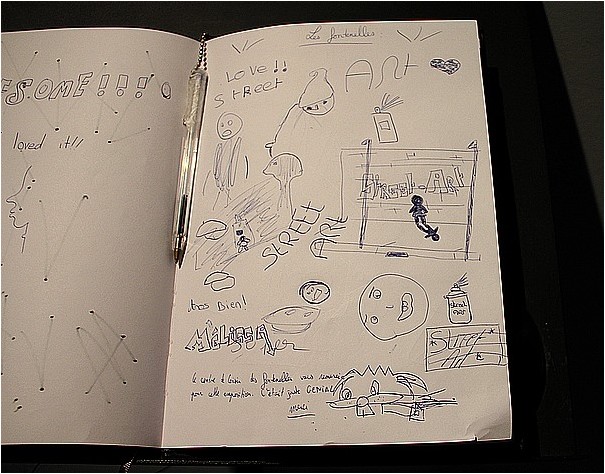 ESOME!!!!
loved it!!
Les fontenelles
LOVE!!
STREET
ART
Street-Art
STREET
ART
très Bien!
Mélissa
Street
Art
Le centre de loisir les fontenelles vous remercie
pour cette exposition. C'était juste GENIAL
Merci